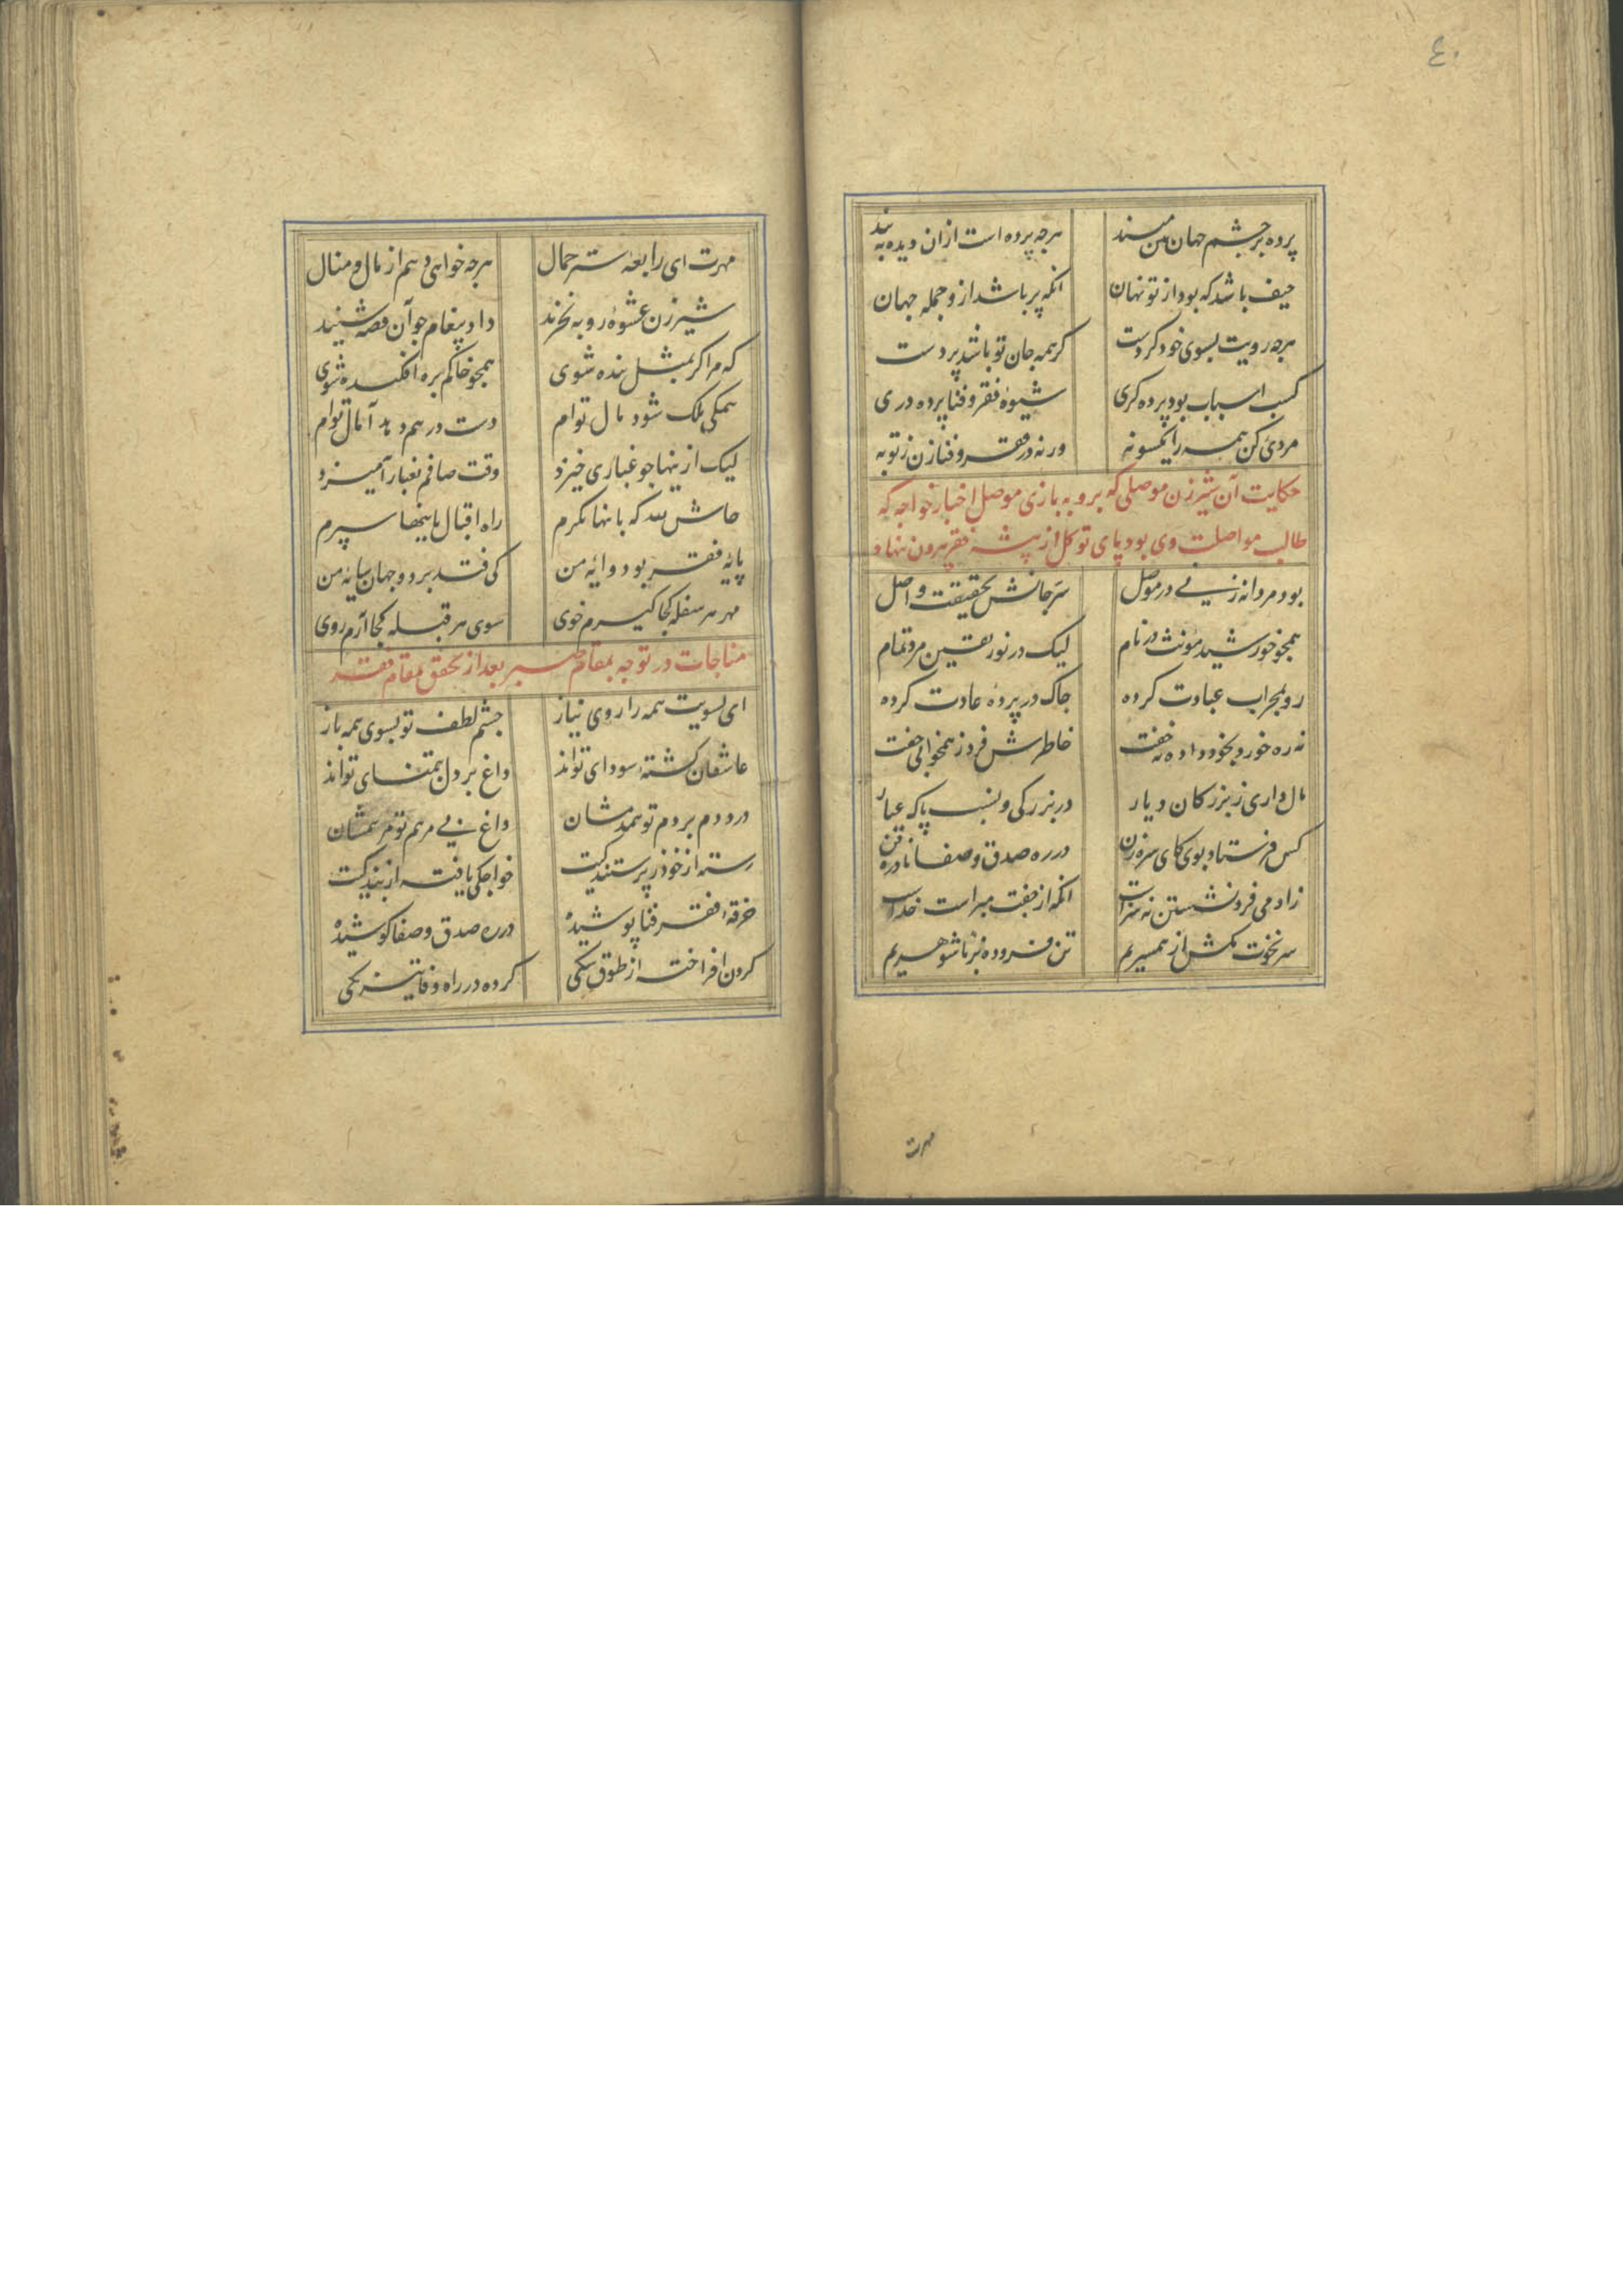 ۴۰
پرده بر چشم جهان بین مپسند هرچه پرده است ازان دیده ببند
حیف باشد که بود از تو نهان آنکه پر باشد ازو جمله جهان
هرچه رویت بسوی خود کردست گر همه جان تو باشد پردست
کسب اسباب بود پرده گری شیوهٔ فقر و فنا پرده دری
مردی کن همه را یکسو نه ورنه در فقر و فنا زن ز تو به
حکایت آن شیرزن موصلی که بروبه بازی موصل اخبار خواجه که
طالب مواصلت وی بود پای توکل از بیشه فقر بیرون ننهاد
بود مردانه زنی در موصل سر جانش بحقیقت واصل
همچو خورشید مؤنث در نام لیک در نور یقین مرد تمام
رو بمحراب عبادت کرده چاک در پردهٔ عادت کرده
نه ره خورد بخود داده نه خفت خاطرش فرد ز همخوابی جفت
مال داری ز بزرگان دیار در بزرگی و نسب پاک عیار
کس فرستاد بوی کای سره زن در ره صدق و صفا نادره فن
زادمی فرد نشستن نه سزاست آنکه از جفت مبراست خداست
سر نخوت مکش از همسریم تن فرو ده بزناشوهریم
مهرت
مهرت ای رابعهٔ ستر جمال هرچه خواهی دهم از مال و منال
شیرزن عشوهٔ روبه نخرید داد پیغام چو آن قصه شنید
که مرا گر بمثل بنده شوی همچو خاکم بره افکنده شوی
همگی ملک شود مال توام دست درهم دهد آمال توام
لیک ازینها چو غباری خیزد وقت صافم بغبار آمیزد
حاش لله که باینها نگرم راه اقبال باینها سپرم
پایهٔ فقر بود وایهٔ من کی فتد بر دو جهان سایهٔ من
مهر هر سفله کجا گیرم خوی سوی هر قبله کجا آرم روی
مناجات در توجه بمقام صبر بعد از تحقق بمقام فقر
ای بسویت همه را روی نیاز چشم لطف تو بسوی همه باز
عاشقان گشتهٔ سودای تواند داغ بر دل بتمنای تواند
درد دم بر دم تو همدمشان داغ بی مرهم تو مرهمشان
رسته از خود ز پرستندگیت خواجگی یافته از بندگیت
خرقهٔ فقر و فنا پوشیده در ره صدق و صفا کوشیده
گردن افراخته از طوق سگی کرده در راه وفا تیزتگی